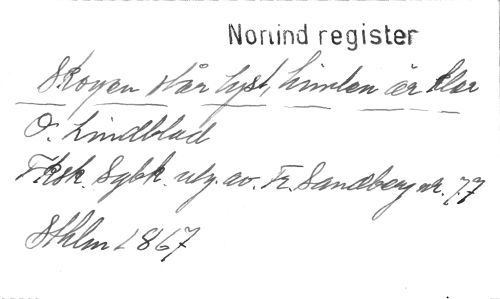 Norlind register
Skogen står tyst, himlen är klar
O. Lindblad
Fksk. Sgbk. utg. av. Fr. Sandberg nr. 77
Sthlm 1867